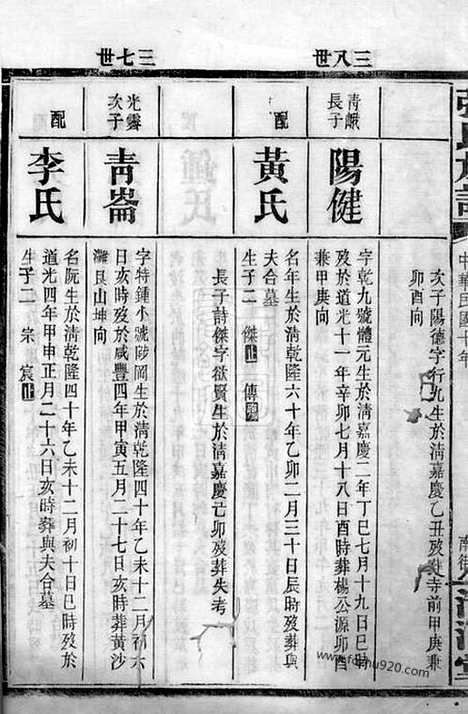 張氏族譜
中華民國十年
三八世
次子陽德字行九生於清嘉慶乙丑歿葬寺前甲庚兼
卯酉向
青巘
長子
陽健
字乾九號體元生於清嘉慶二年丁巳七月十九日巳時
歿於道光十一年辛卯七月十八日酉時葬楊公源卯酉
兼甲庚向
配
黃氏
名年生於清乾隆六十年乙卯二月三十日辰時歿葬與
夫合墓
生子二 傑止 傳殤
長子詩傑字欲賢生於清嘉慶己卯歿葬失考
三七世
光霽
次子
青崙
字特鍾小號陟岡生於清乾隆四十年乙未十二月初六
日亥時歿於咸豐四年甲寅五月二十七日亥時葬黃沙
艮山坤向
配
李氏
名阮生於清乾隆四十年乙未十二月初十日巳時歿於
道光四年甲申正月二十六日亥時葬與夫合墓
生子二 宗 宸止